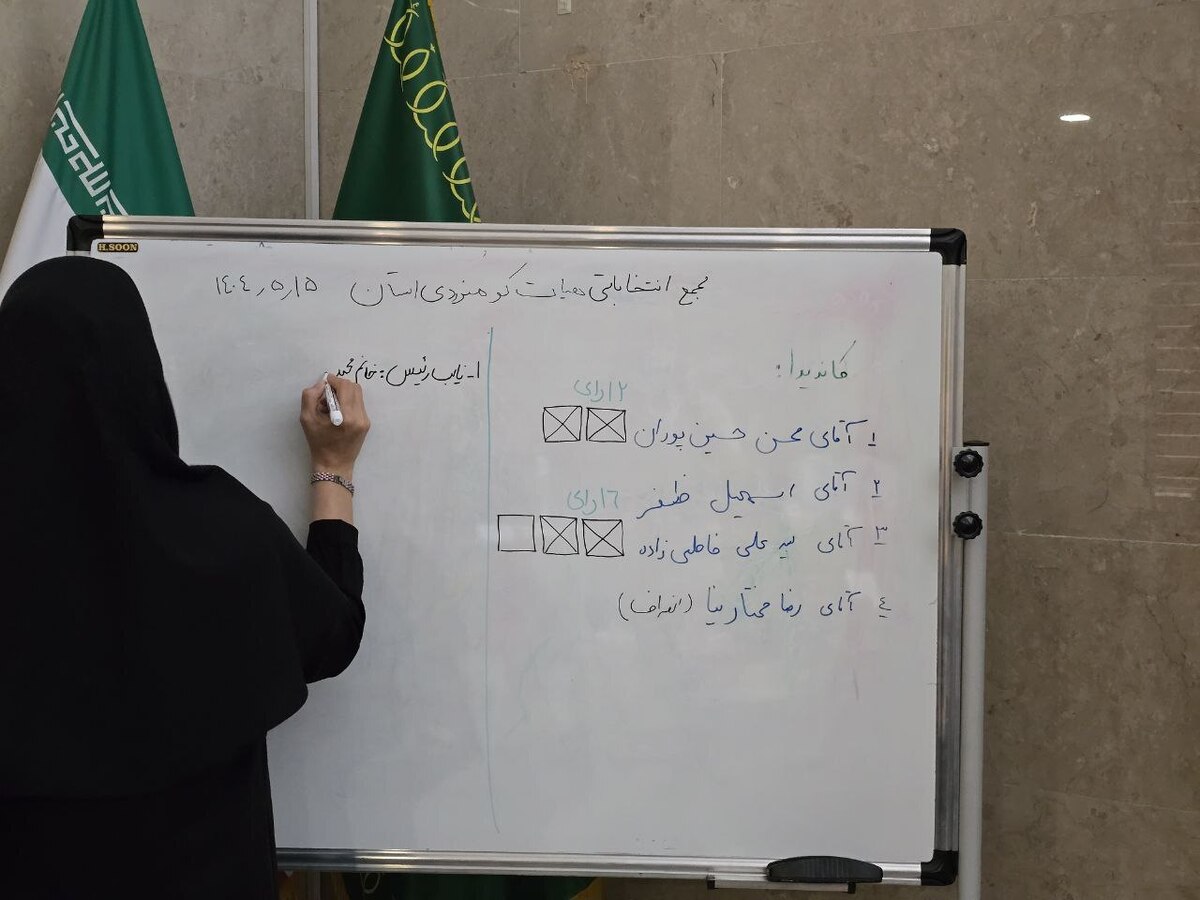 H.SOON
مجمع انتخاباتی هیات کوهنوردی استان ۱۴۰۴٫۵٫۱۵
کاندیدا:
۱۲ رای
۱ آقای محسن حسین پوران
۲ آقای اسمعیل ظفر
۱۶ رای
۳ آقای سید علی فاطمی زاده
٤ آقای رضا مختار نیا (انصراف)
۱- نایب رئیس: خانم محمد